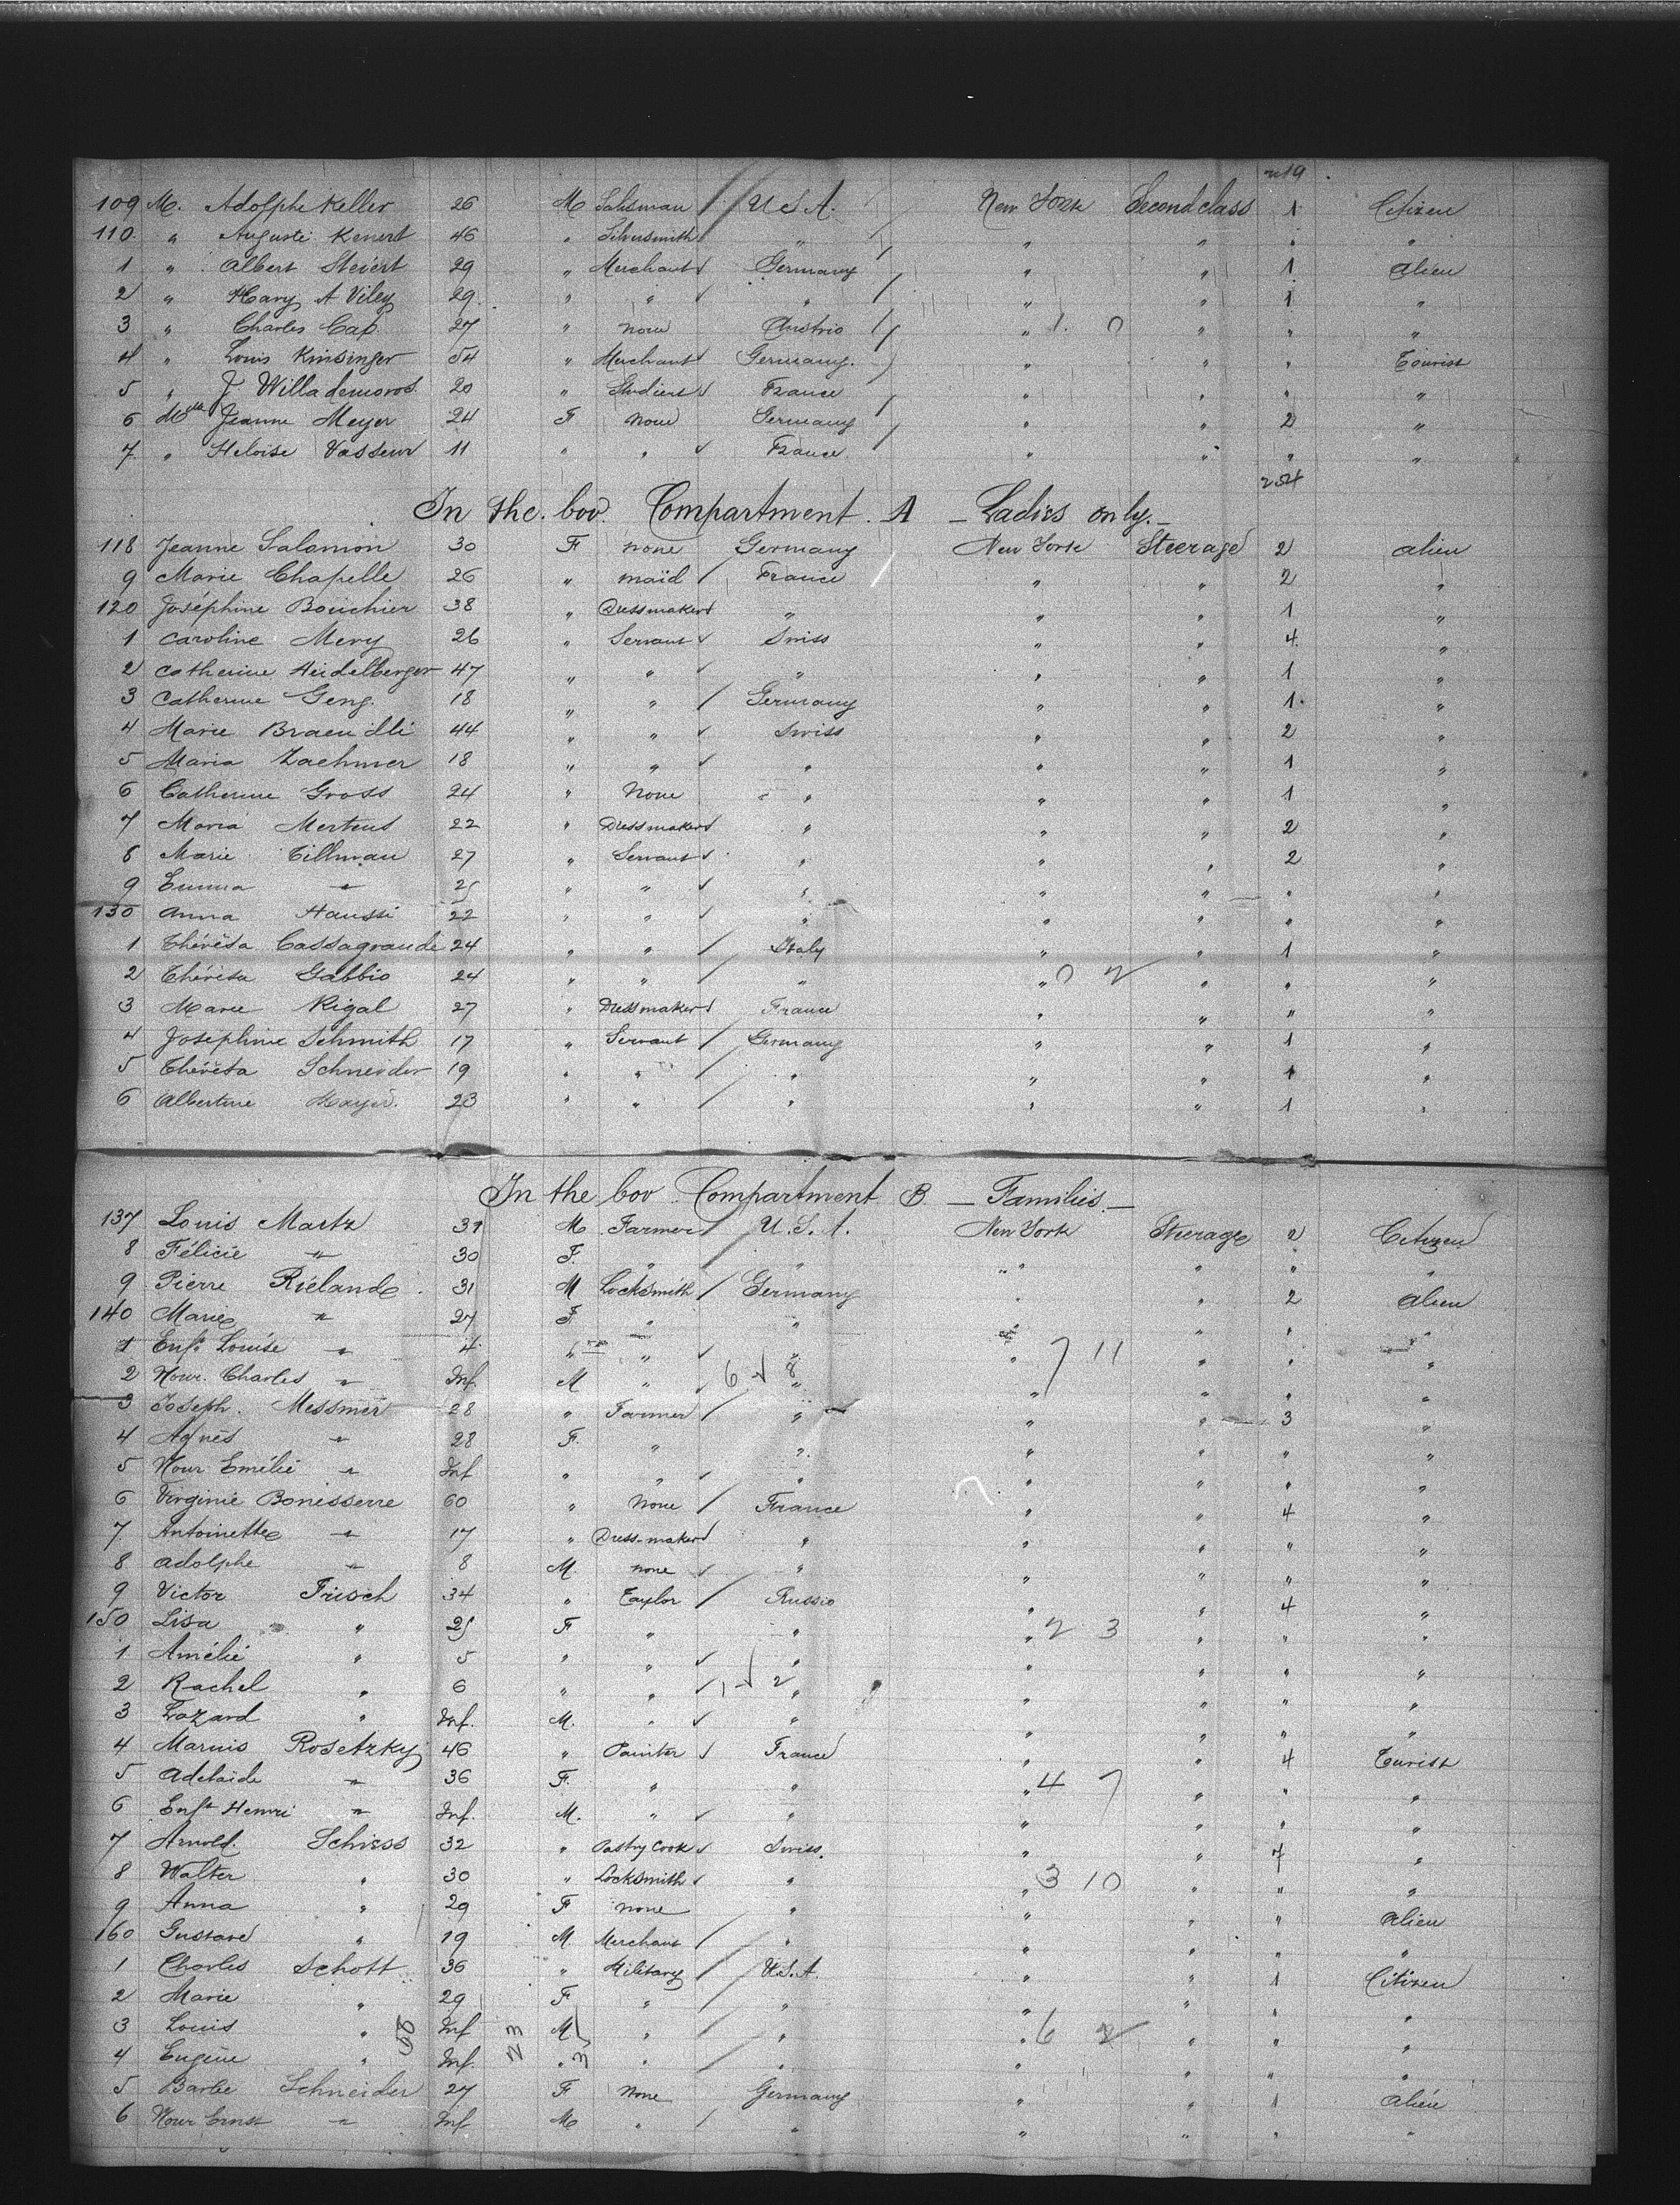 109 M. Adolphe Keller 26 M Salesman / U.S.A. / New York Second class 1 Citizen
110 " Auguste Kenert 46 " Silversmith " " " " "
1 " Albert Steiert 29 " Merchant Germany / " " 1 alien
2 " Harry A Viley 29 " " " / " " 1 "
3 " Charles Cap. 27 " none Austria / " " " "
4 " Louis Kinsinger 54 " Merchant Germany. " " " Tourist
5 " J Willademoros 20 " Student France / " " " "
6 Mlle Jeanne Meyer 24 F none Germany / " " 2 "
7 " Heloise Vasseur 11 " " France " " " "
In the bov. Compartment. A _ Ladies only._
118 Jeanne Salomon 30 F none Germany New York Steerage 2 alien
9 Marie Chapelle 26 " maïd / France " " 2 "
120 Joséphine Bouchier 38 " Dressmaker " " " 1 "
1 Caroline Mery 26 " Servant Swiss " " 4 "
2 Catherine Heidelberger 47 " " " " " 1 "
3 Catherine Geng. 18 " " / Germany " " 1 "
4 Marie Braendli 44 " " Swiss " " 2 "
5 Maria Zaehmer 18 " " " " " 1 "
6 Catherine Gross 24 " None " " " 1 "
7 Maria Mertens 22 " Dressmaker " " " 2 "
8 Marie Tillman 27 " Servant " " " 2 "
9 Emma " 25 " " " " " " "
130 Anna Haussi 22 " " " " " " "
1 Thérésa Cassagrande 24 " " / Italy " " 1 "
2 Thérésa Gabbio 24 " " / " " " " "
3 Marie Rigal 27 " Dressmaker France " " " "
4 Josephine Schmith 17 " Servant / Germany " " 1 "
5 Thérésa Schneider 19 " " / " " " 1 "
6 Albertine Mayer. 23 " " / " " " 1 "
In the bov Compartment B. _ Families._
137 Louis Martz 31 M. Farmer / U.S.A. New York Steerage 2 Citizen
8 Félicie " 30 F. " " " " " "
9 Pierre Riélande 31 M Locksmith / Germany " " 2 alien
140 Marie " 27 F " " " " " "
1 Enft. Louise " 4 " " " " " " "
2 Nour. Charles " Inf. M " " " " " "
3 Joseph. Messmer 28 " Farmer / " " " 3 "
4 Agnès " 28 F. " " " " " "
5 Nour Emélie " Inf " " " " " " "
6 Virginie Bonisserre 60 " None / France " " 4 "
7 Antoinette " 17 " Dress-maker " " " " "
8 Adolphe " 8 M. none " " " " "
9 Victor Frisch 34 " Taylor / Russia " " 4 "
150 Lisa " 25 F " " " " " "
1 Amélie " 5 " " " " " " "
2 Rachel " 6 " " " " " " "
3 Lazard " Inf. M. " " " " " "
4 Marius Rosetzky 46 " Painter France " " 4 Turist
5 Adelaïde " 36 F. " " " " " "
6 Enft Henri " Inf. M. " " " " " "
7 Arnold. Schiess 32 " Pastry Cook Swiss. " " 7 "
8 Walter " 30 " Locksmith " " " " "
9 Anna " 29 F none " " " " alien
160 Gustave " 19 M Merchant / " " " " "
1 Charles Schott 36 " Military / U.S.A. " " 1 Citizen
2 Marie " 29 F " " " " " "
3 Louis " Inf M " " " " " "
4 Eugène " Inf. " " " " " " "
5 Barbe Schneider 27 F none Germany " " 1 alien
6 Nour Ernst " Inf M " / " " " " "